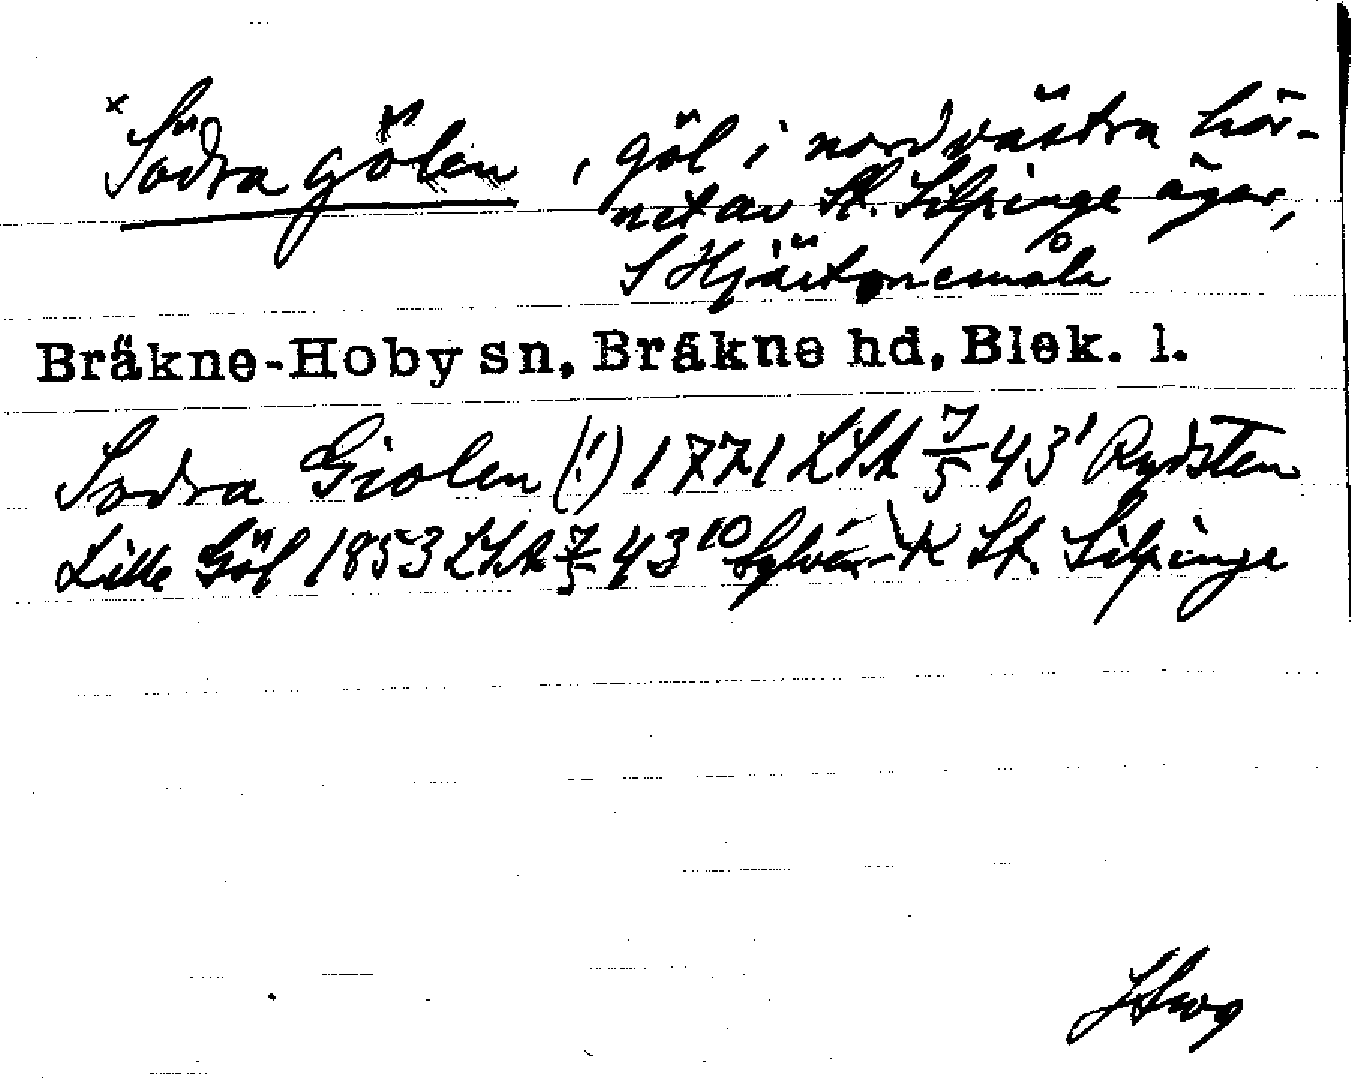 x Södra gölen, göl i nordvästra hör-
net av St. Silpinge ägor,
S Hjärtonemåla
Bräkne-Hoby sn, Bräkne hd, Blek. l.
Sodra Giolen (!) 1771 LSA 7/5 43¹ Rydsten
Lille Göl 1853 LSA 7/5 43¹⁰ K St. Silpinge